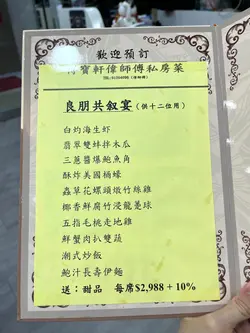 歡迎預訂
寶軒偉師傅私房菜
良朋共叙宴(供十二位用)
白灼海生蝦
翡翠雙蚌拌木瓜
三蔥醬爆鮑魚角
酥炸美國桶蠔
蟲草花螺頭燉竹絲雞
椰香鮮腐竹浸龍躉球
五指毛桃走地雞
鮮蟹肉扒雙蔬
潮式炒飯
鮑汁長壽伊麵
送:甜品 每席$2,988+10%